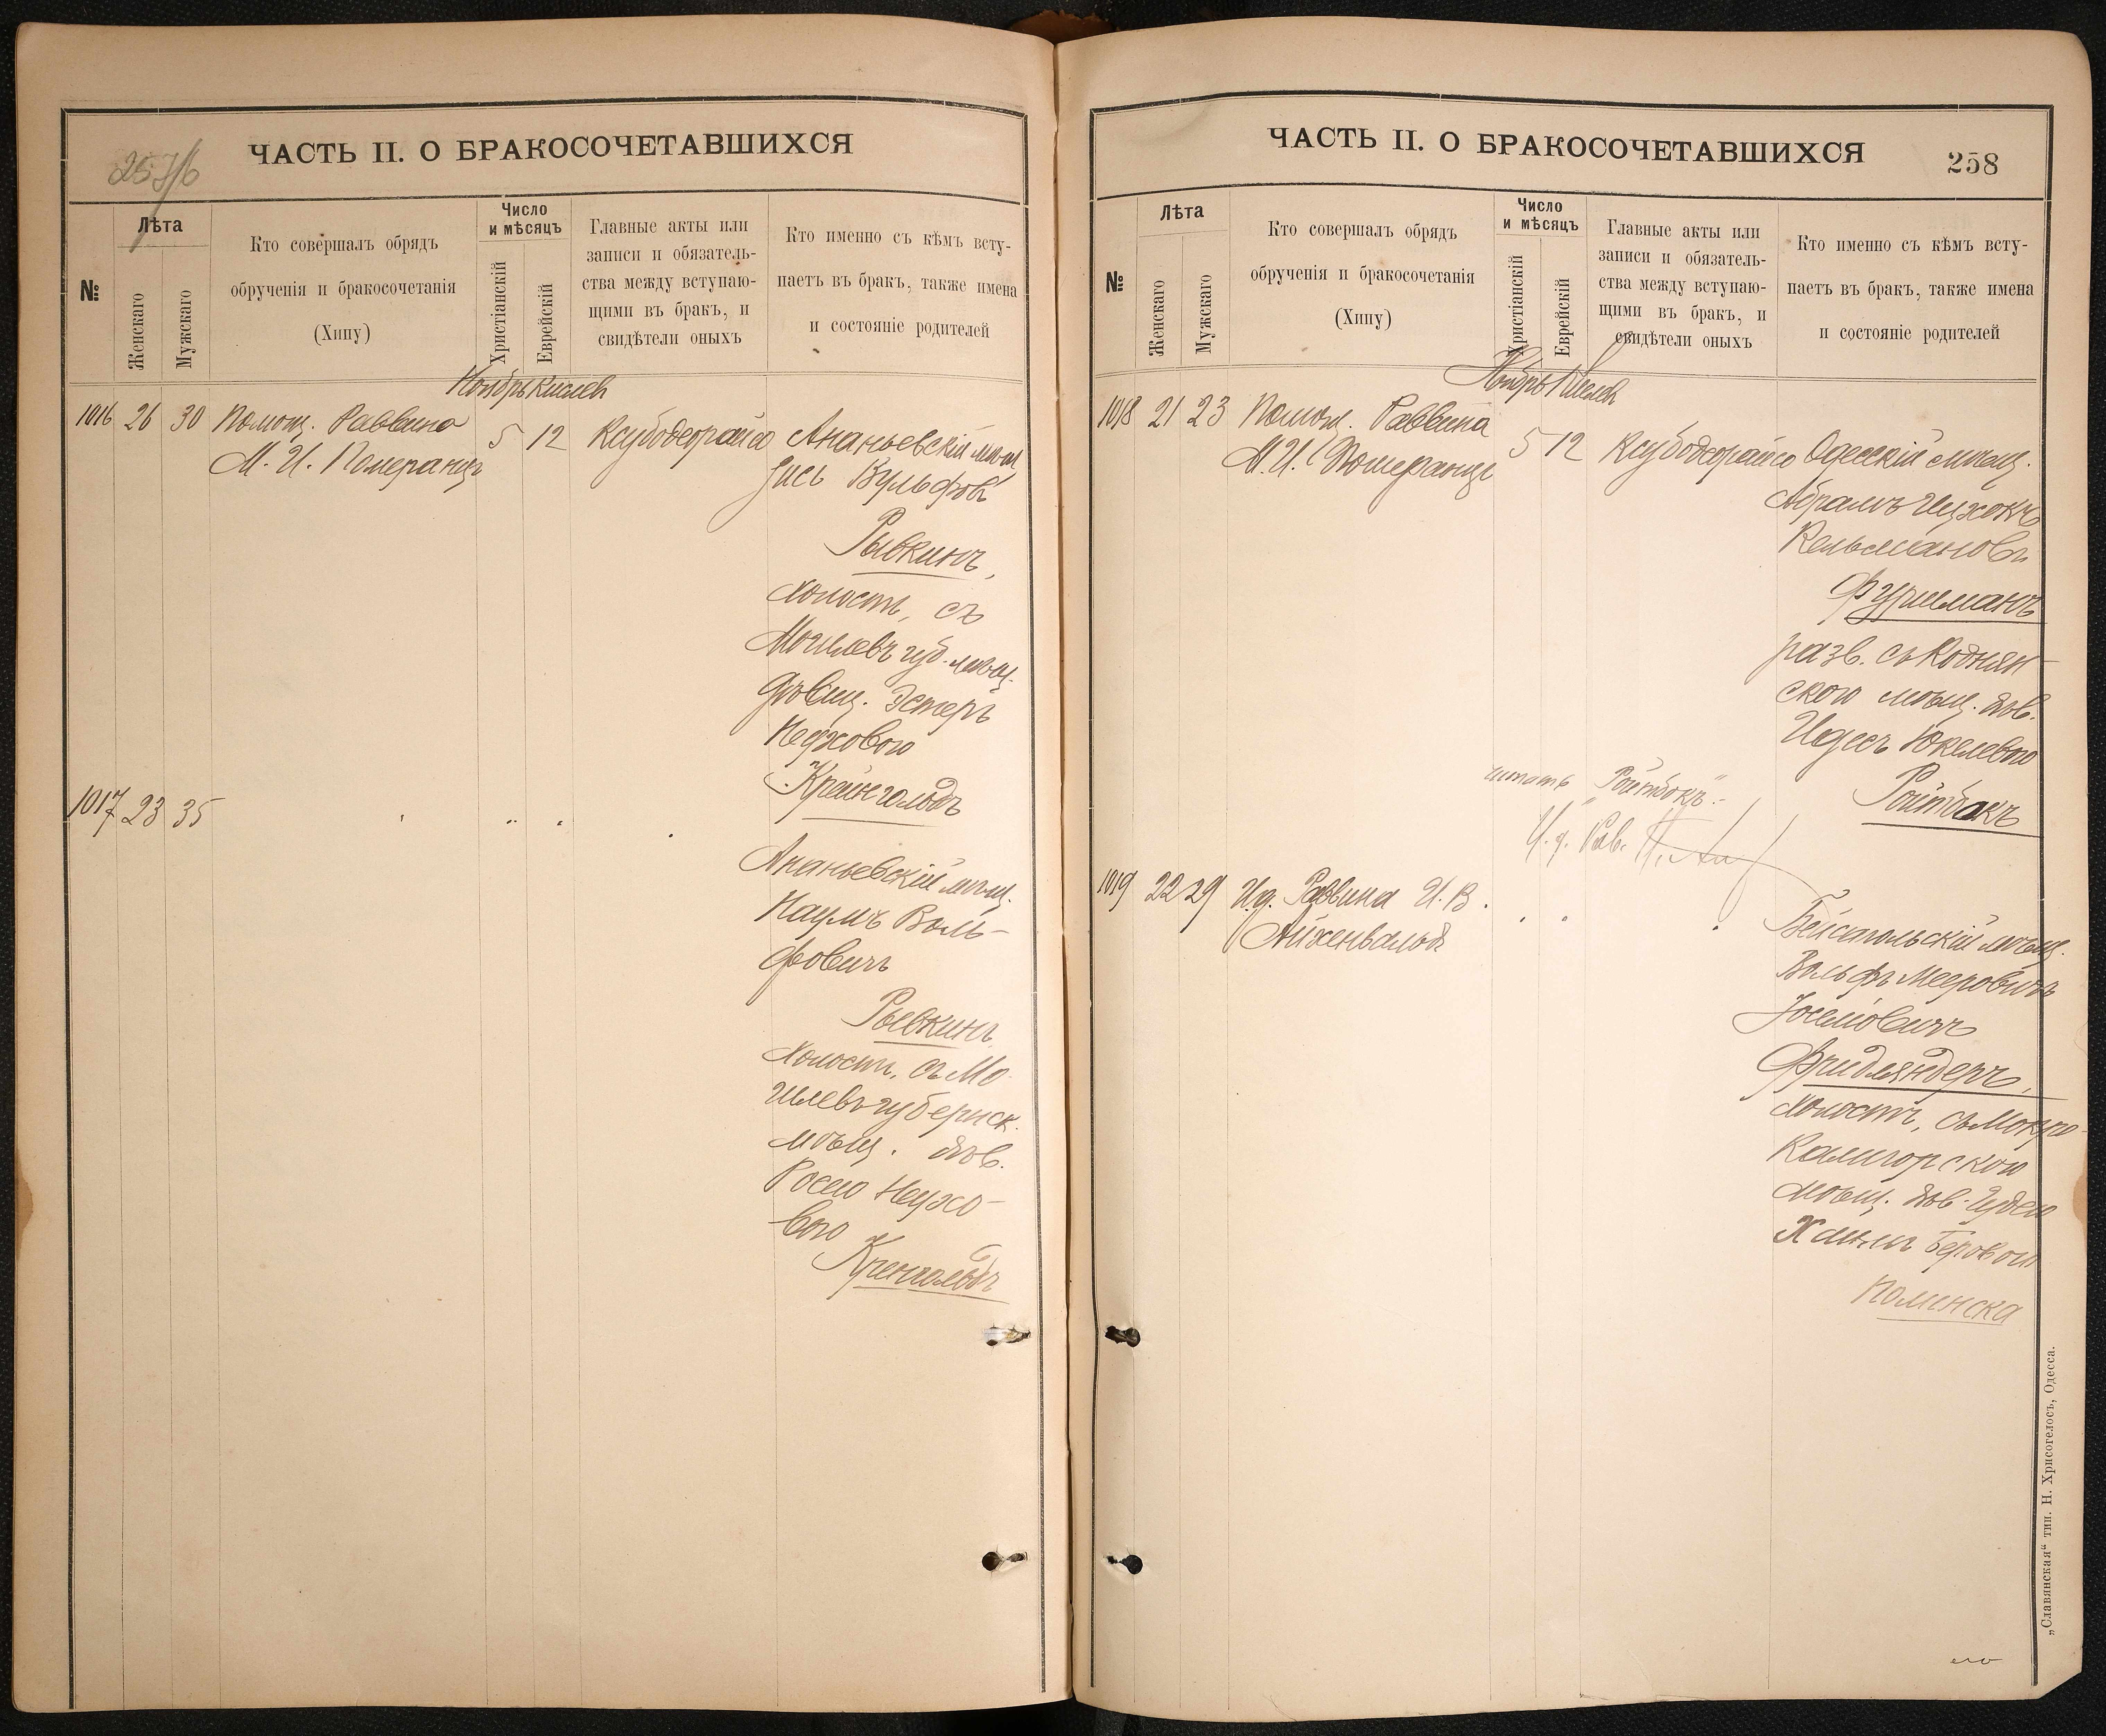 257/б
ЧАСТЬ II. О БРАКОСОЧЕТАВШИХСЯ
№
Лѣта
Женскаго
Мужскаго
Кто совершалъ обрядъ
обрученія и бракосочетанія
(Хипу)
Число
и мѣсяцъ
Христіанскій
Еврейскій
Главные акты или
записи и обязатель-
ства между вступаю-
щими въ бракъ, и
свидѣтели оныхъ
Кто именно съ кѣмъ всту-
паетъ въ бракъ, также имена
и состояніе родителей
Ноябрь Кислев
1016 26 30 Помощ. Раввина
М. И. Померанцъ
5 12 Ксубодеорайсо
Ананьевскій мѣщ
Гись Вульфов
Рывкинъ,
холостъ, съ
Могилевъ губ. мѣщ.
дѣвиц. Эстеръ
Неухового
Крейнгольдъ
1017 23 35
Ананьевскій мѣщ.
Наумъ Воль-
фовичъ
Рывкинъ
холостъ, съ Мо-
гилевъ губернск.
мѣщ. дѣв.
Росею Неухо-
вого
Кренгольдъ
ЧАСТЬ II. О БРАКОСОЧЕТАВШИХСЯ
258
№
Лѣта
Женскаго
Мужскаго
Кто совершалъ обрядъ
обрученія и бракосочетанія
(Хипу)
Число
и мѣсяцъ
Христіанскій
Еврейскій
Главные акты или
записи и обязатель-
ства между вступаю-
щими въ бракъ, и
свидѣтели оныхъ
Кто именно съ кѣмъ всту-
паетъ въ бракъ, также имена
и состояніе родителей
Ноябрь Кислев
1018 21 23 Помощ. Раввина
М. И. Померанцъ
5 12 Ксубодеорайсо
Одесскій мѣщ.
Абрамъ Ицхокъ
Кельмановъ
Фурманъ
разв. съ Коднян-
ского мѣщ. дѣв.
Идесъ Юкелевого
Ройтбакъ
читать "Ройтбокъ".-
И. д. Рав.
1019 22 29 И.д. Раввина И. В.
Айхенвальдъ
Бейсагольскій мѣщ.
Вольфъ Мееровичъ
Госелiовичъ
Фридляндеръ,
холостъ, съ Мокро-
Калигорского
мѣщ. дѣв.
Беровой
Поминска
„Славянская“ тип. Н. Хрисогелосъ, Одесса.